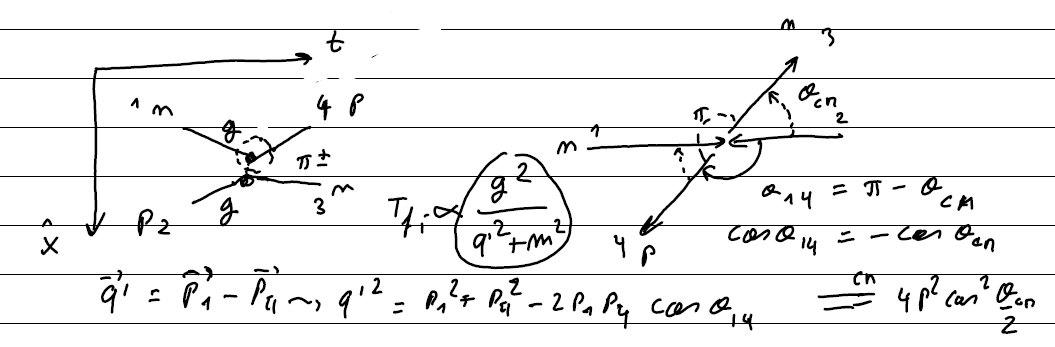 t
x̂
1 n
4 p
g
π±
p 2
g
3 n
T_fi ∝ g² / (q'² + m²)
n 3
θ_cm
2
π
n 1
4 p
θ_14 = π - θ_CM
cos θ_14 = - cos θ_cm
q⃗' = p⃗_1 - p⃗_4 ⇝ q'² = p_1² + p_4² - 2 p_1 p_4 cos θ_14 =^{cm} 4p² cos² θ_cm/2